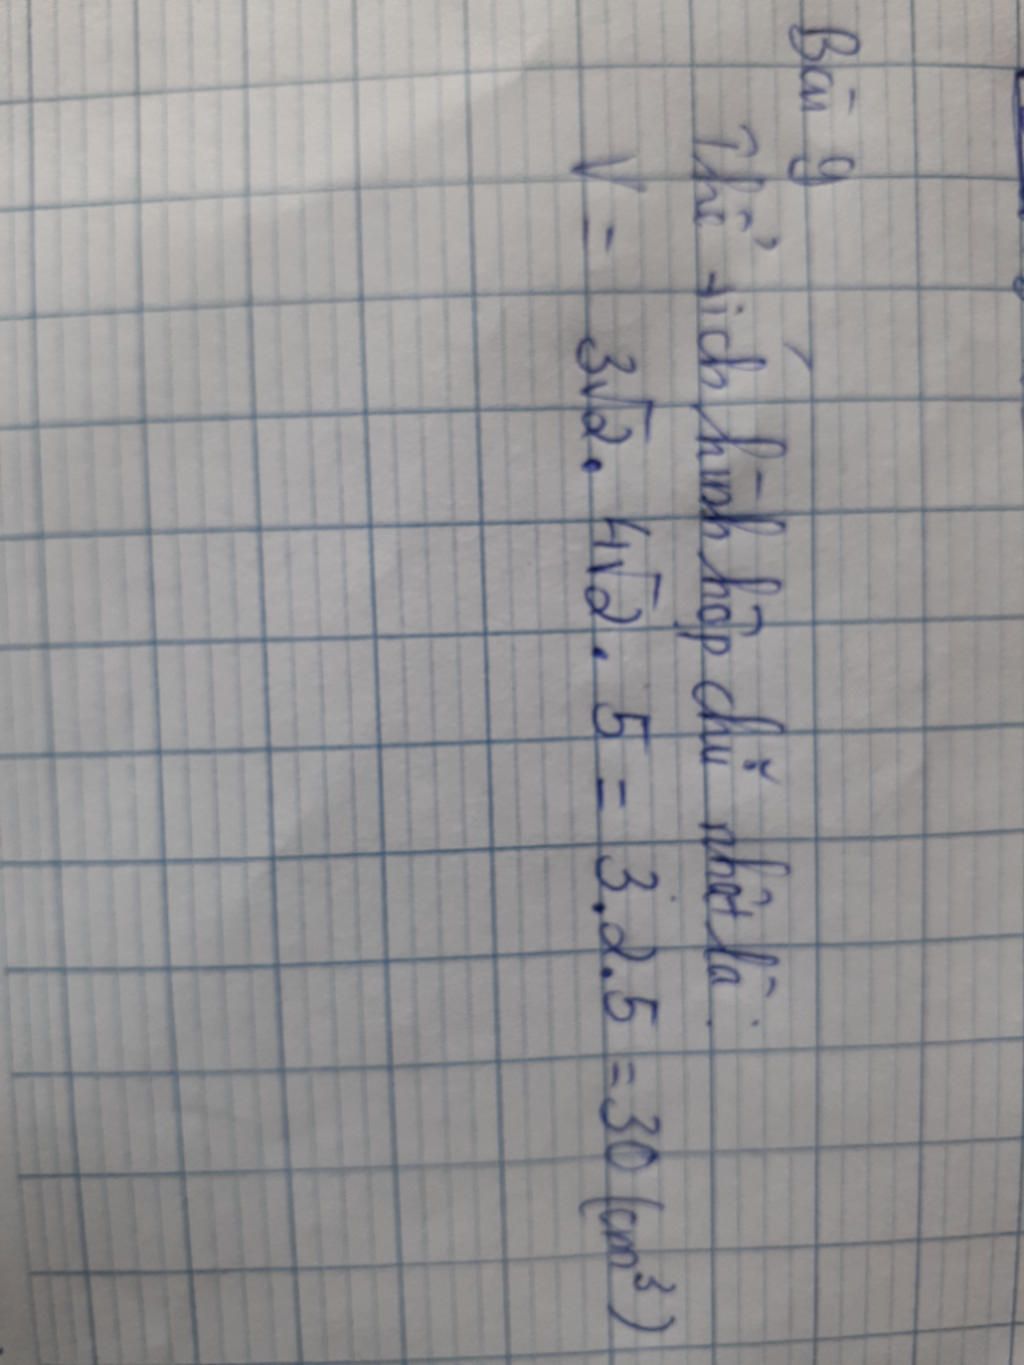 Bài 9
Thể tích hình hộp chữ nhật là:
V = 3√2 . 4√2 . 5 = 3.2.5 = 30 (cm³)